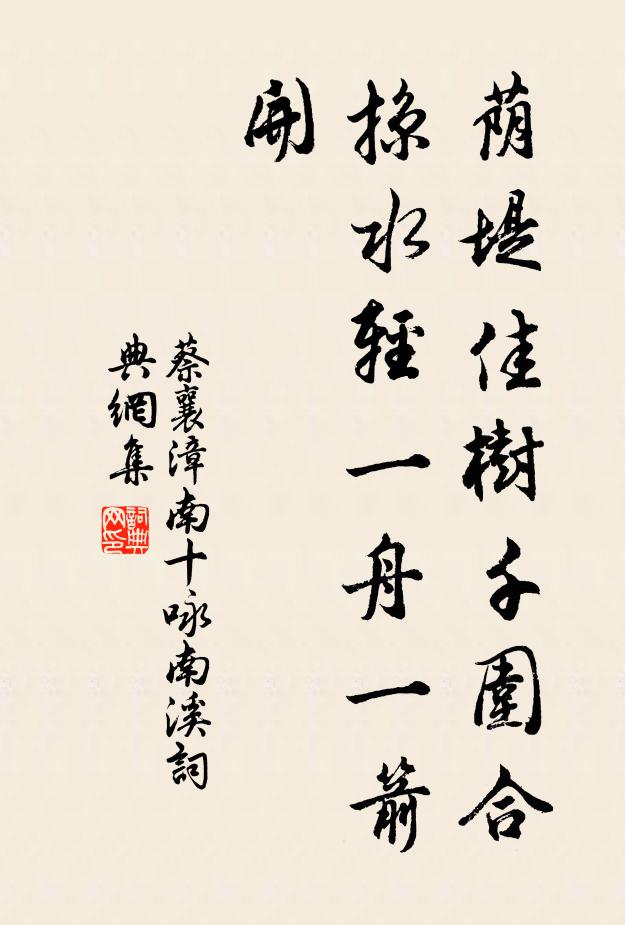 荫堤佳樹千圍合
掠水輕一舟一箭
開
蔡襄漳南十咏南溪詞
典網集
詞典网印